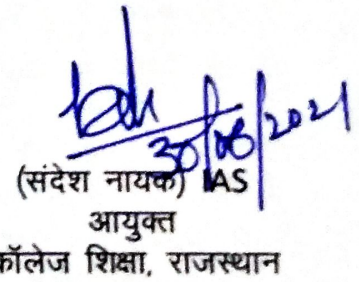 30/08/2021
(संदेश नायक) IAS
आयुक्त
कॉलेज शिक्षा, राजस्थान